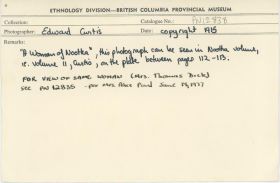 ETHNOLOGY DIVISION—BRITISH COLUMBIA PROVINCIAL MUSEUM
Collection Catalogue No.: PN 2838
Photographer: Edward Curtis Date: copyright 1915
Remarks:
"A Woman of Nootka", this photograph can be seen in Nootka volume,
ie. volume 11, Curtis, on the plate between pages 112-113.
FOR VIEW OF SAME WOMAN (MRS. THOMAS DICK)
SEE PN #2835 - per Mrs Alice Paul June 1977